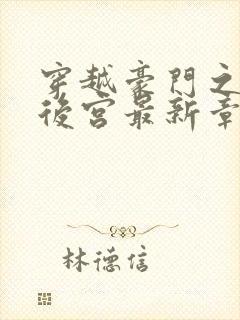 穿越豪門之
後宮最新章
林德信